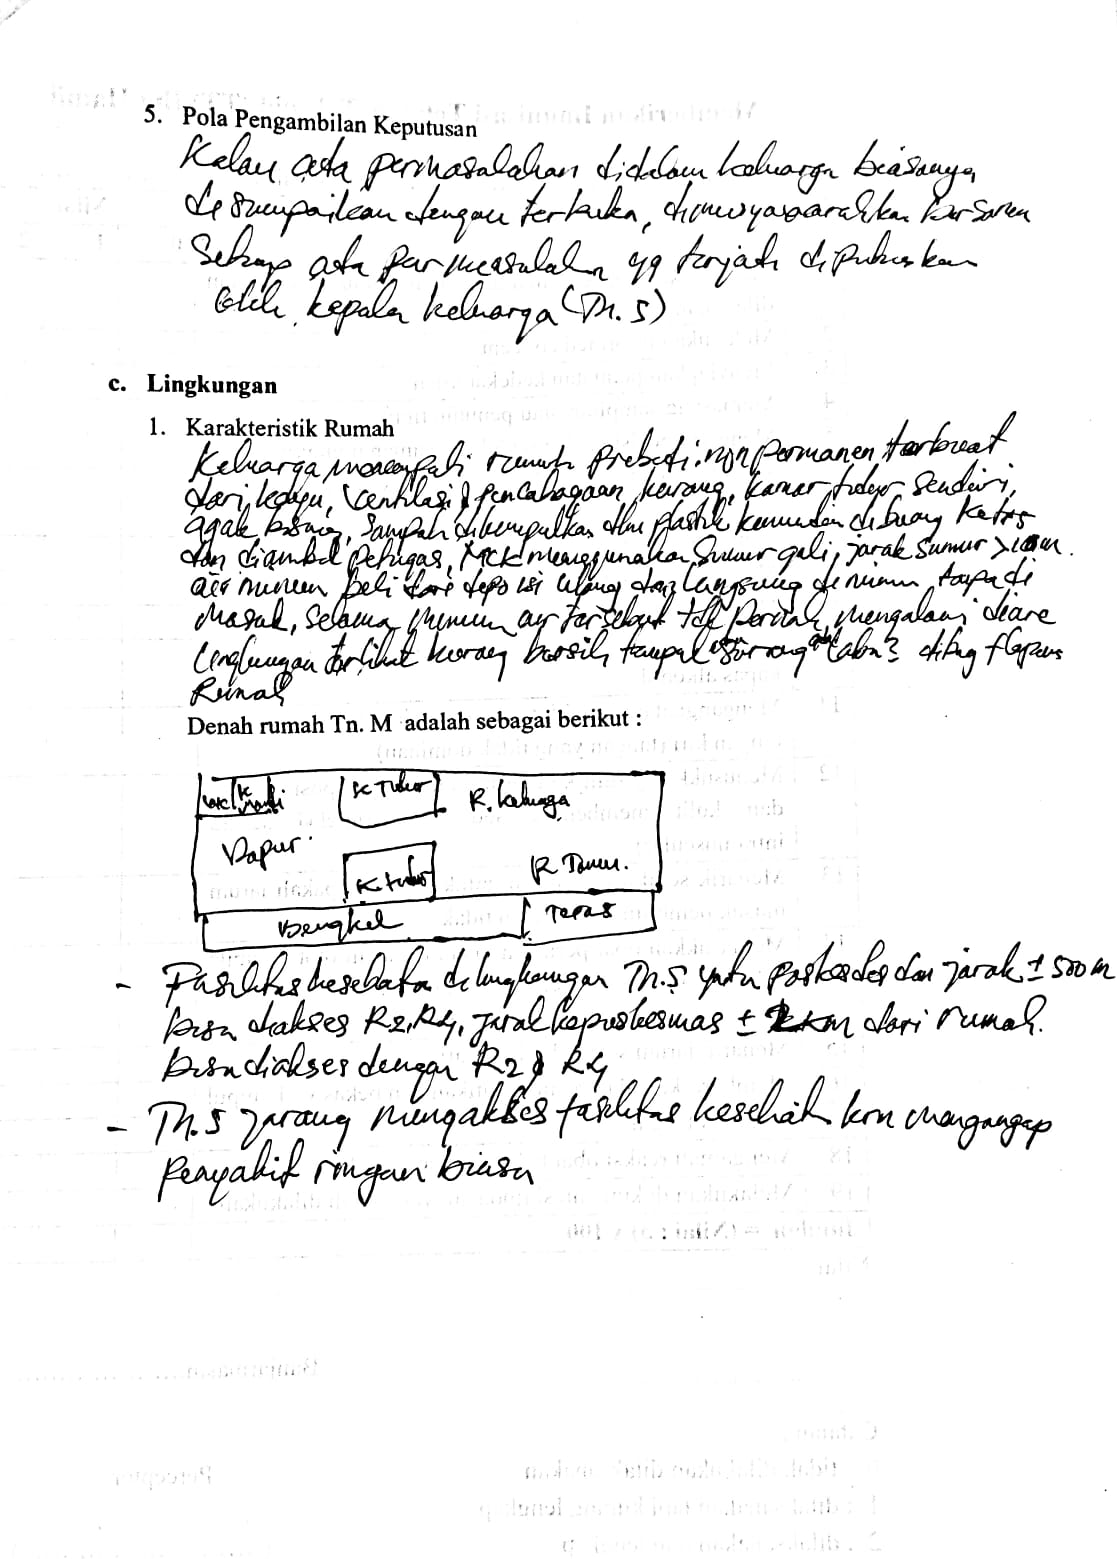 5. Pola Pengambilan Keputusan
Kalau ada permasalahan didalam keluarga biasanya
di sampaikan dengan terbuka, dimusyawarahkan bersama
Setiap ada permasalahn yg terjadi diputuskan
oleh kepala keluarga (Tn. S)
c. Lingkungan
1. Karakteristik Rumah
Keluarga menempati rumah pribadi non permanen terbuat
dari kayu, Ventilasi & pencahayaan kurang, kamar tidur sendiri,
agak bising, Sampah dikumpulkan dlm plastik kemudian dibuang
dan diambil petugas, MCK menggunakan Sumur gali, jarak sumur >10m.
air minum beli dari depo isi ulang dan langsung di minum tanpa di
Masak, Selama Minum air tersebut tdk pernah mengalami diare
Lingkungan terlihat kurang bersih, tampak
Denah rumah Tn. M adalah sebagai berikut :
WC K Mandi K Tidur R. keluarga
Dapur K tidur R Tamu.
Bengkel Teras
- Fasilitas kesehatan di lingkungan Tn.S yaitu poskesdes dan jarak ± 500 m
bisa diakses R2, R4, jarak kepuskesmas ± 2 km dari rumah.
bisa diakses dengan R2 & R4
- Tn. S Jarang mengakses fasilitas kesehatn krn menganggap
Penyakit ringan biasa